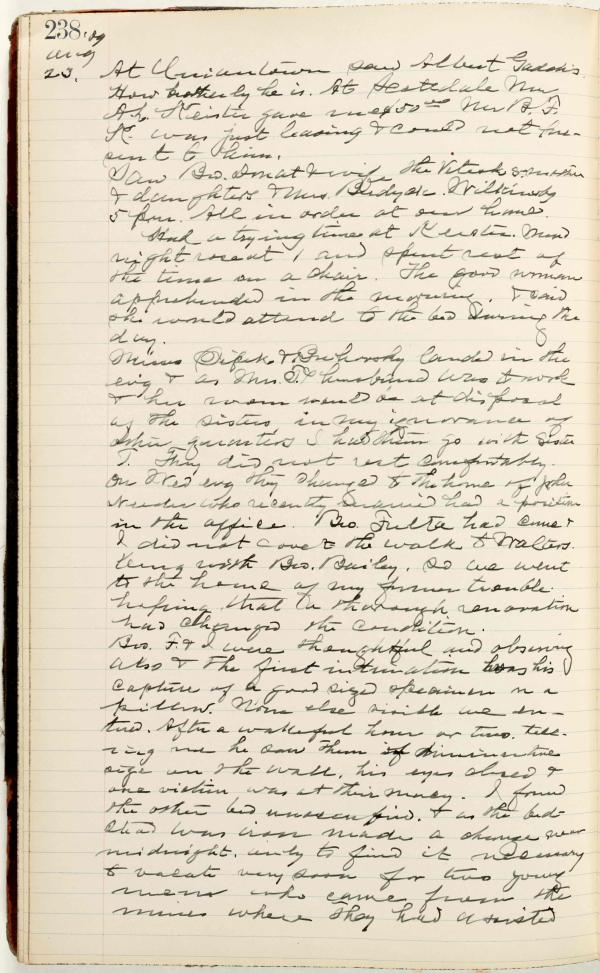 238 '09
Aug
23. At Uniontown saw Albert Gaddis.
How brotherly he is. At Scotdale Mr.
A. L. Keister gave me $50 00 Mr B. F.
K. was just leaving & could not pre-
sent to him.
Saw Bro. & wife The mother
& daughters & Mrs.
5 pm. All in order at our home.
Had a trying time at Keister. Mond
night rose at 1 and spent rest of
the time on a chair. The good woman
apprehended in the morning. & said
she would attend to the bed during the
day.
Misses & landed in the
evng & as Mrs. T.'s husband was to work
& her room would be at disposal
of the sisters in my ignorance of
other quarters I had them go with Sister
T. They did not rest comfortably.
On Wed evg they changed to the home of John
who recently married had a position
in the office. Bro. had come &
I did not covet the walk to Walters.
burg with Bro. Bailey. So we went
to the home of my former trouble.
hoping that a thorough renovation
had changed the condition.
Bro. F. & I were thoughtful and observing
also & the first intimation was his
capture of a good sized specimen on a
pillow. None else visible we en-
tered. After a wakeful hour or two. tell-
ing me he saw them of diminutive
size on the wall, his eyes closed &
one victim was at their mercy. I found
the other bed unoccupied. & as the bed-
stead was iron made a change near
midnight. only to find it necessary
to vacate very soon for two young
men who came from the
mines where they had assisted